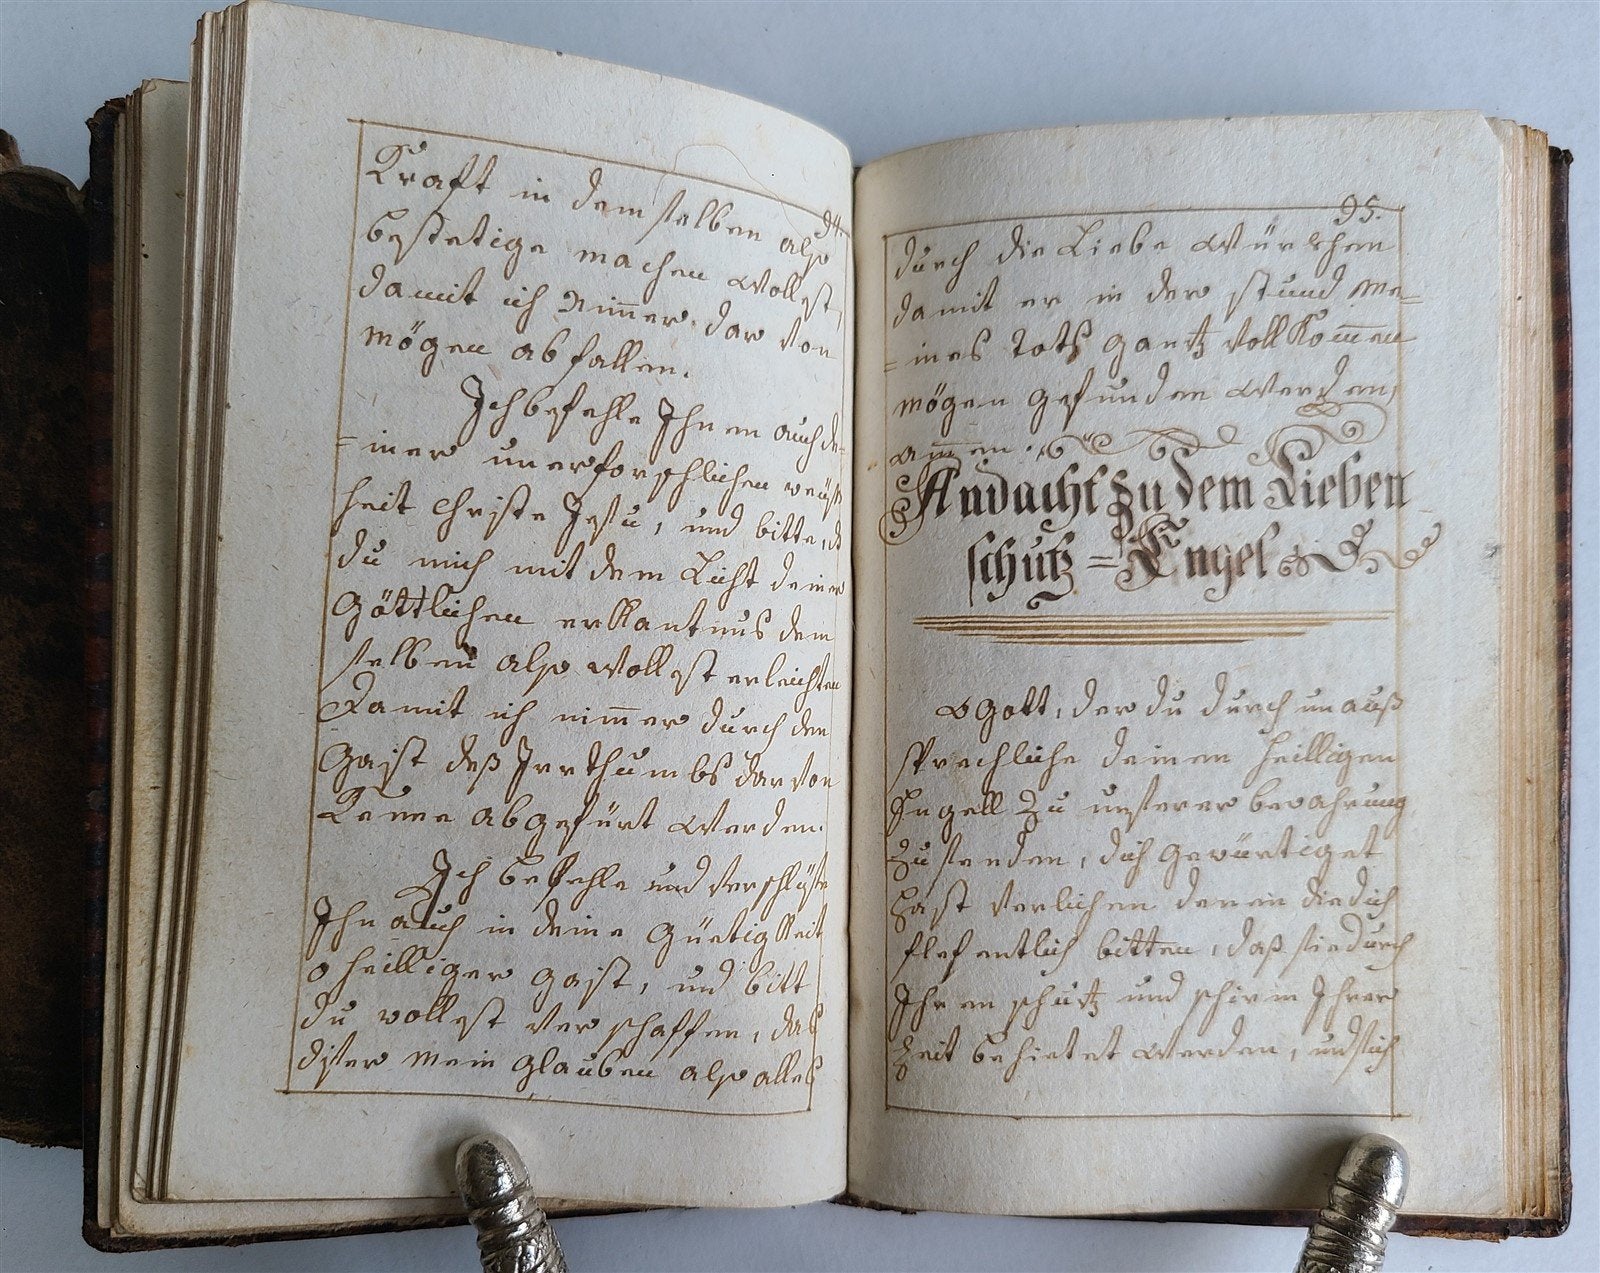 94.
Krafft in demselben also
bestetige machen wollest,
damit ich Nim̄er dar von
mögen abfallen.
Ich befehle Ihnen auch de=
=iner unerforschlichen weiß
heit Christe Jesu, und bitte, d
du mich mit dem Licht deiner
Göttlichen erkantnus dem
selben also wollest erleichten
Damit ich nim̄er durch den
Gaist deß Irrthumbs dar von
Kenne abgefürt werden.
Ich befehle und verschlyße
Ihn auch in deine Güetigkeit
o heilliger Gaist, und bitt
du wollest ver schaffen, das
diser mein Glauben also alles
95.
durch die Liebe würckhen
damit er in der stund me=
=ines Tots gantz vollkom̄en
mögen gefunden werden,
am̄en.
Andacht zu dem Lieben
schutz=Engel
O Gott, der du durch un auß
sprechliche deinen heilligen
Engell zu unserer bewahrung
zu senden, dich gewürtiget
hast verlichen denen die dich
flesentlich bitten, daß sie durch
Ihren schutz und schirm Ihrer
Zeit behietet werden, und sich